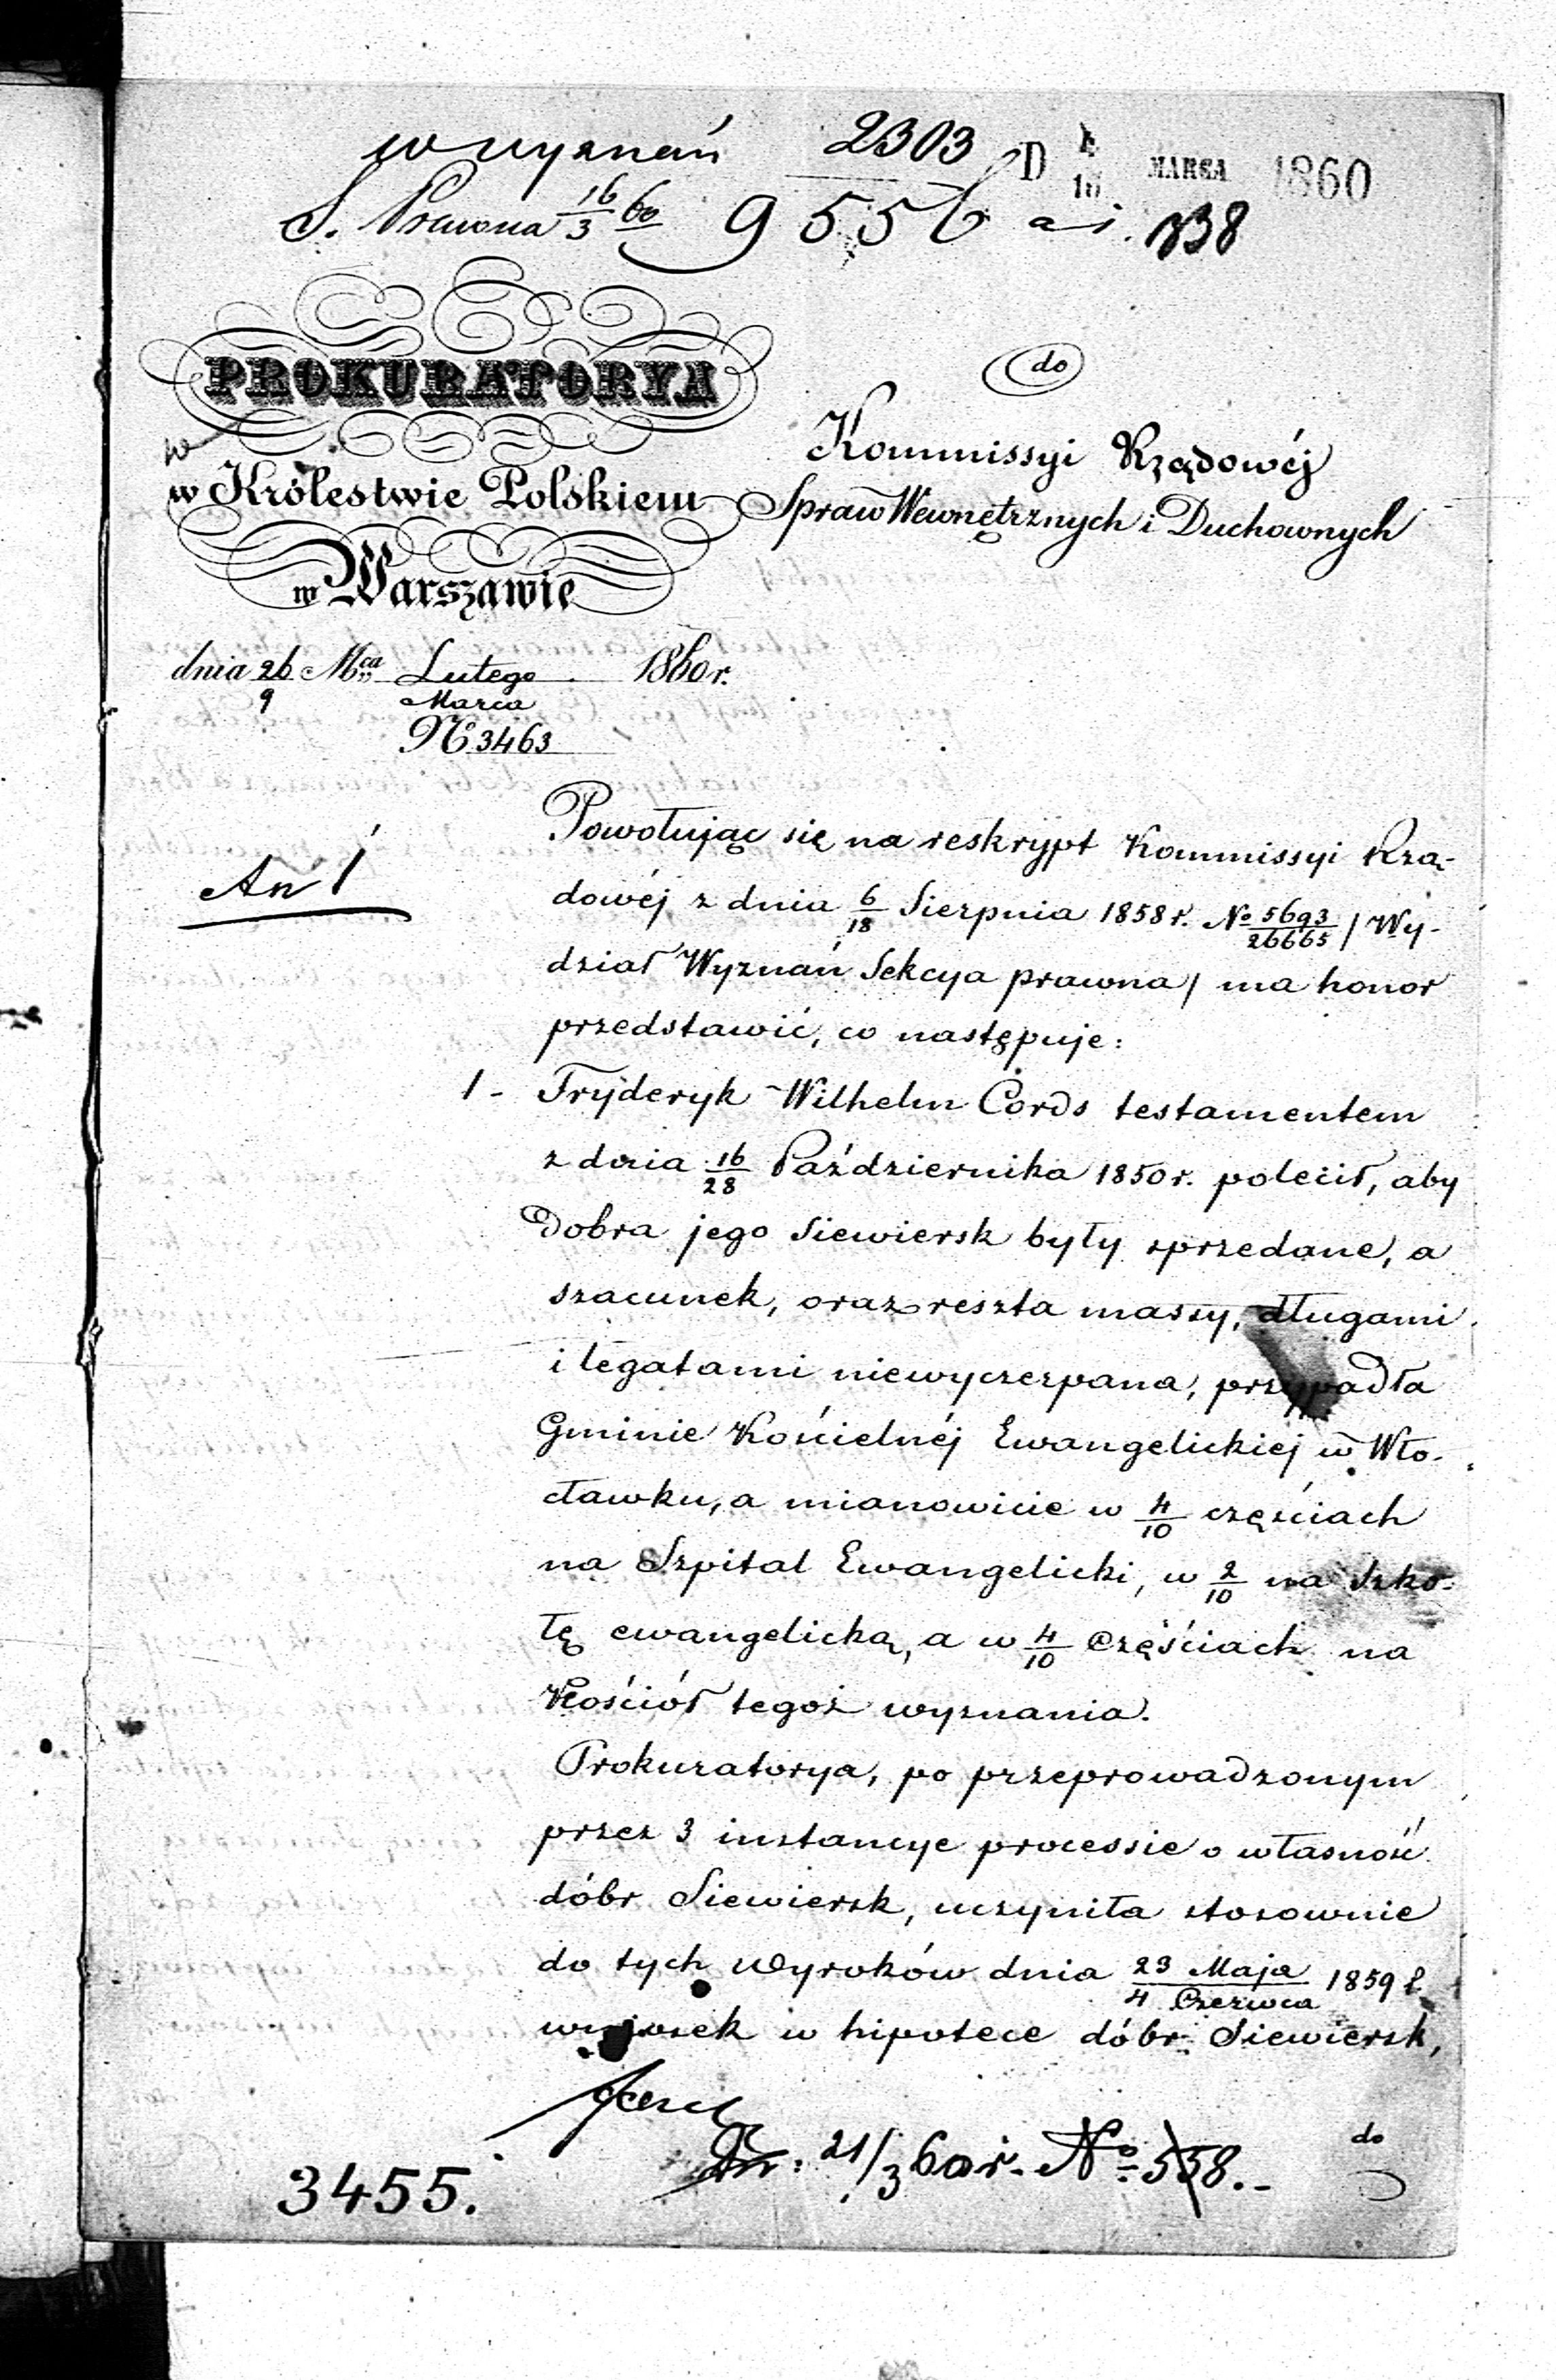 W Wyznań 2303 D 4/16 MARCA 1860
S. Prawna 16/3 60 9556 838
PROKURATORYA
w Królestwie Polskiem
w Warszawie
do
Kommissyi Rządowéj
Spraw Wewnętrznych i Duchownych
dnia 26/9 Mca Lutego/Marca 1860 r.
No 3463
An 1
Powołując się na reskrypt Kommissyi Rzą-
dowéj z dnia 6/18 Sierpnia 1858 r. No 5693/26665 / Wy-
dział Wyznań Sekcya prawna / ma honor
przedstawić, co następuje:
1 - Fryderyk Wilhelm Cords testamentem
z dnia 16/28 Października 1850 r. polecił, aby
dobra jego Siewiersk były sprzedane, a
szacunek, oraz reszta massy, długami
i legatami niewyczerpana, przypadła
Gminie Kościelnéj Ewangelickiej w Wło-
cławku, a mianowicie w 4/10 częściach
na Szpital Ewangelicki, w 2/10 na Szko-
łę ewangelicką, a w 4/10 częściach na
Kościół tegoż wyznania.
Prokuratorya, po przeprowadzonym
przez 3 instancye processie o własność
dóbr Siewiersk, uczyniła stosownie
do tych wyroków dnia 23 Maja/4 Czerwca 1859 r.
wniosek w hipotece dóbr Siewiersk,
do
21/3 60 r. No 558.-
3455.